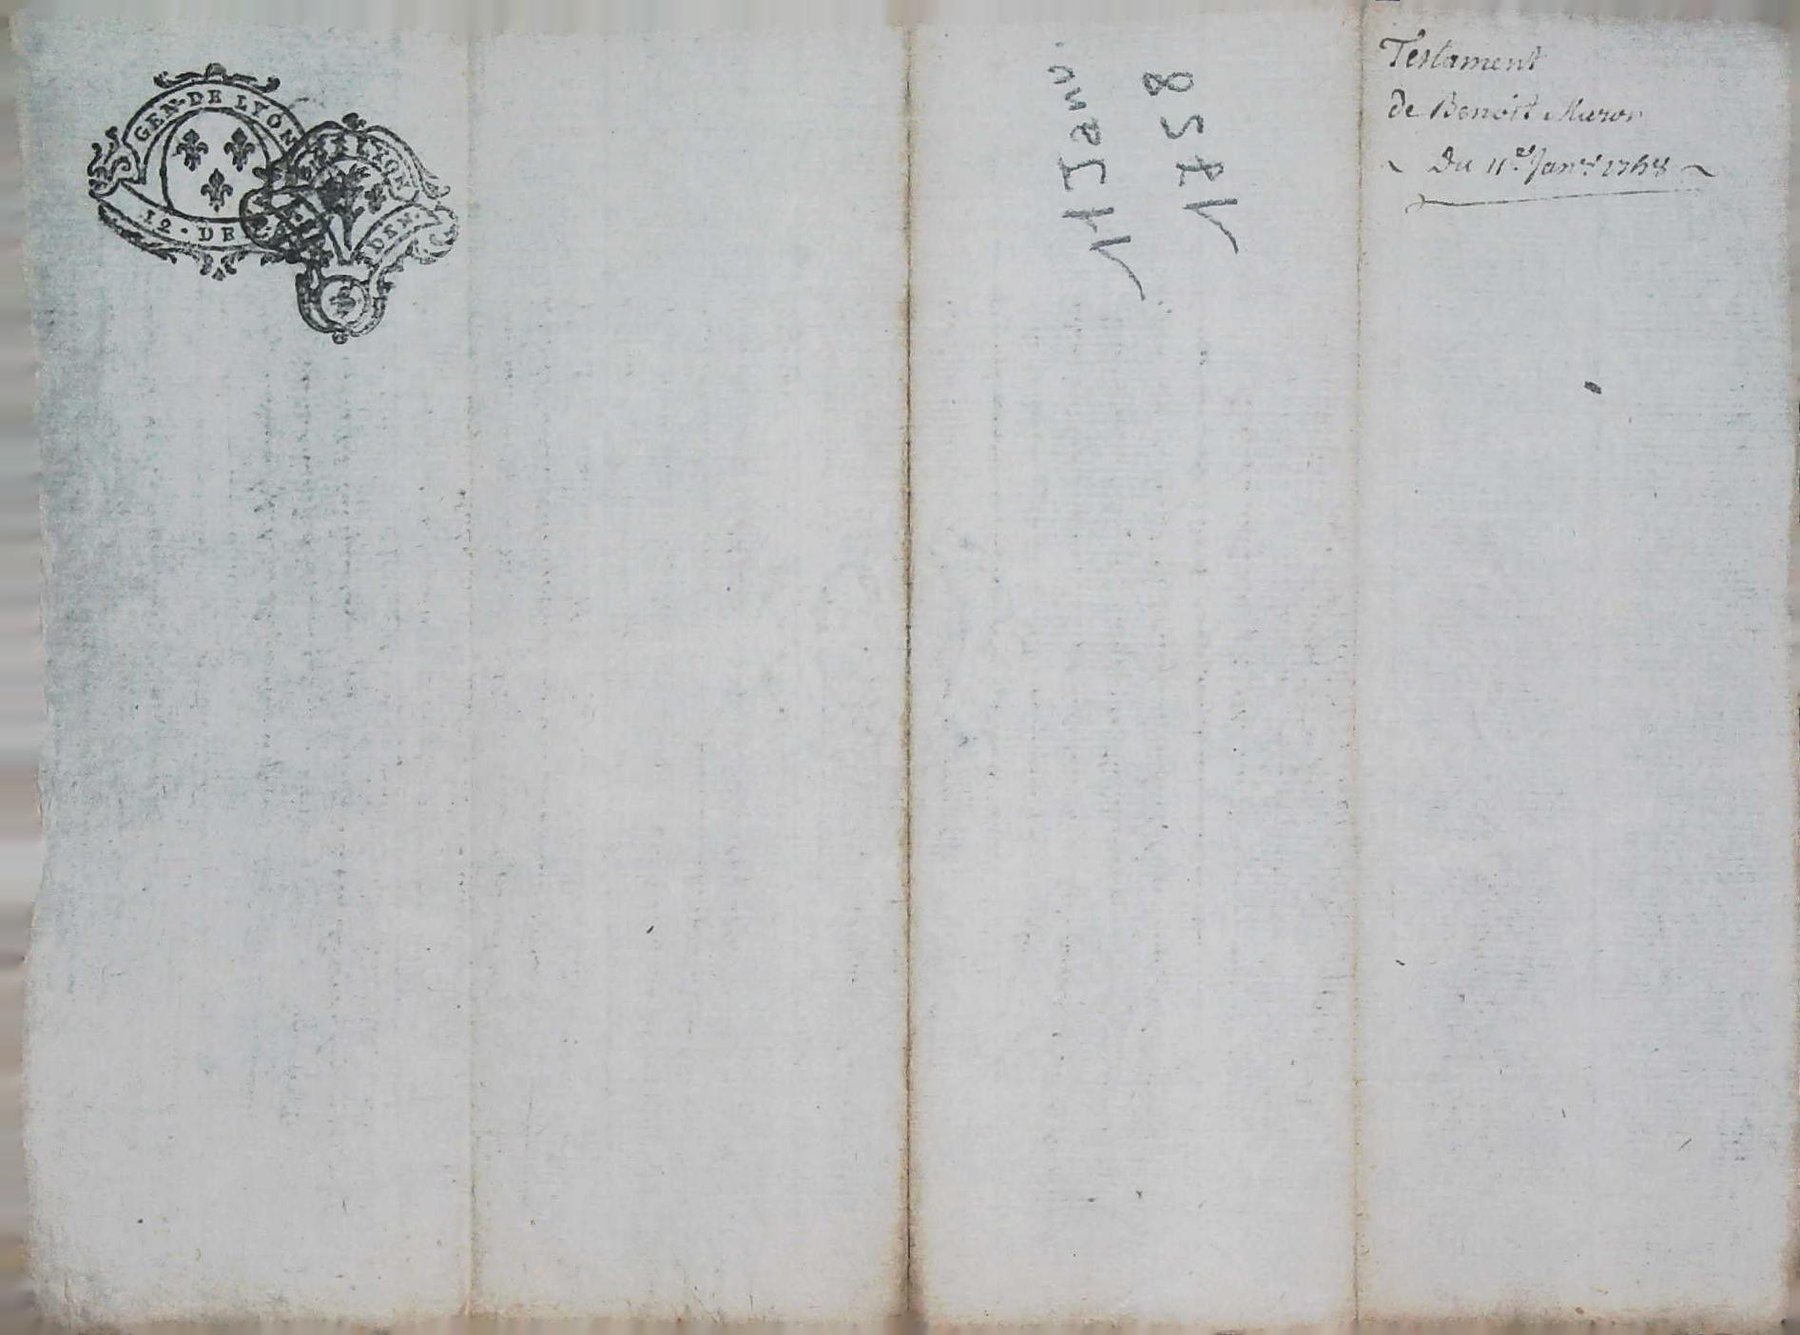 GEN·DE LYON
12·DE
LYON
DEN·
11 Janv
1758
Testament
de Benoit Muron
Du 11e Janr 1758